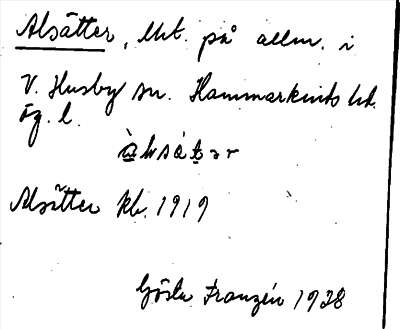 Alsätter, lht. på allm. i
V. Husby sn. Hammarkinds hd.
Ög. l.
àlsátər
Alsätter kb. 1919
Gösta Franzén 1928